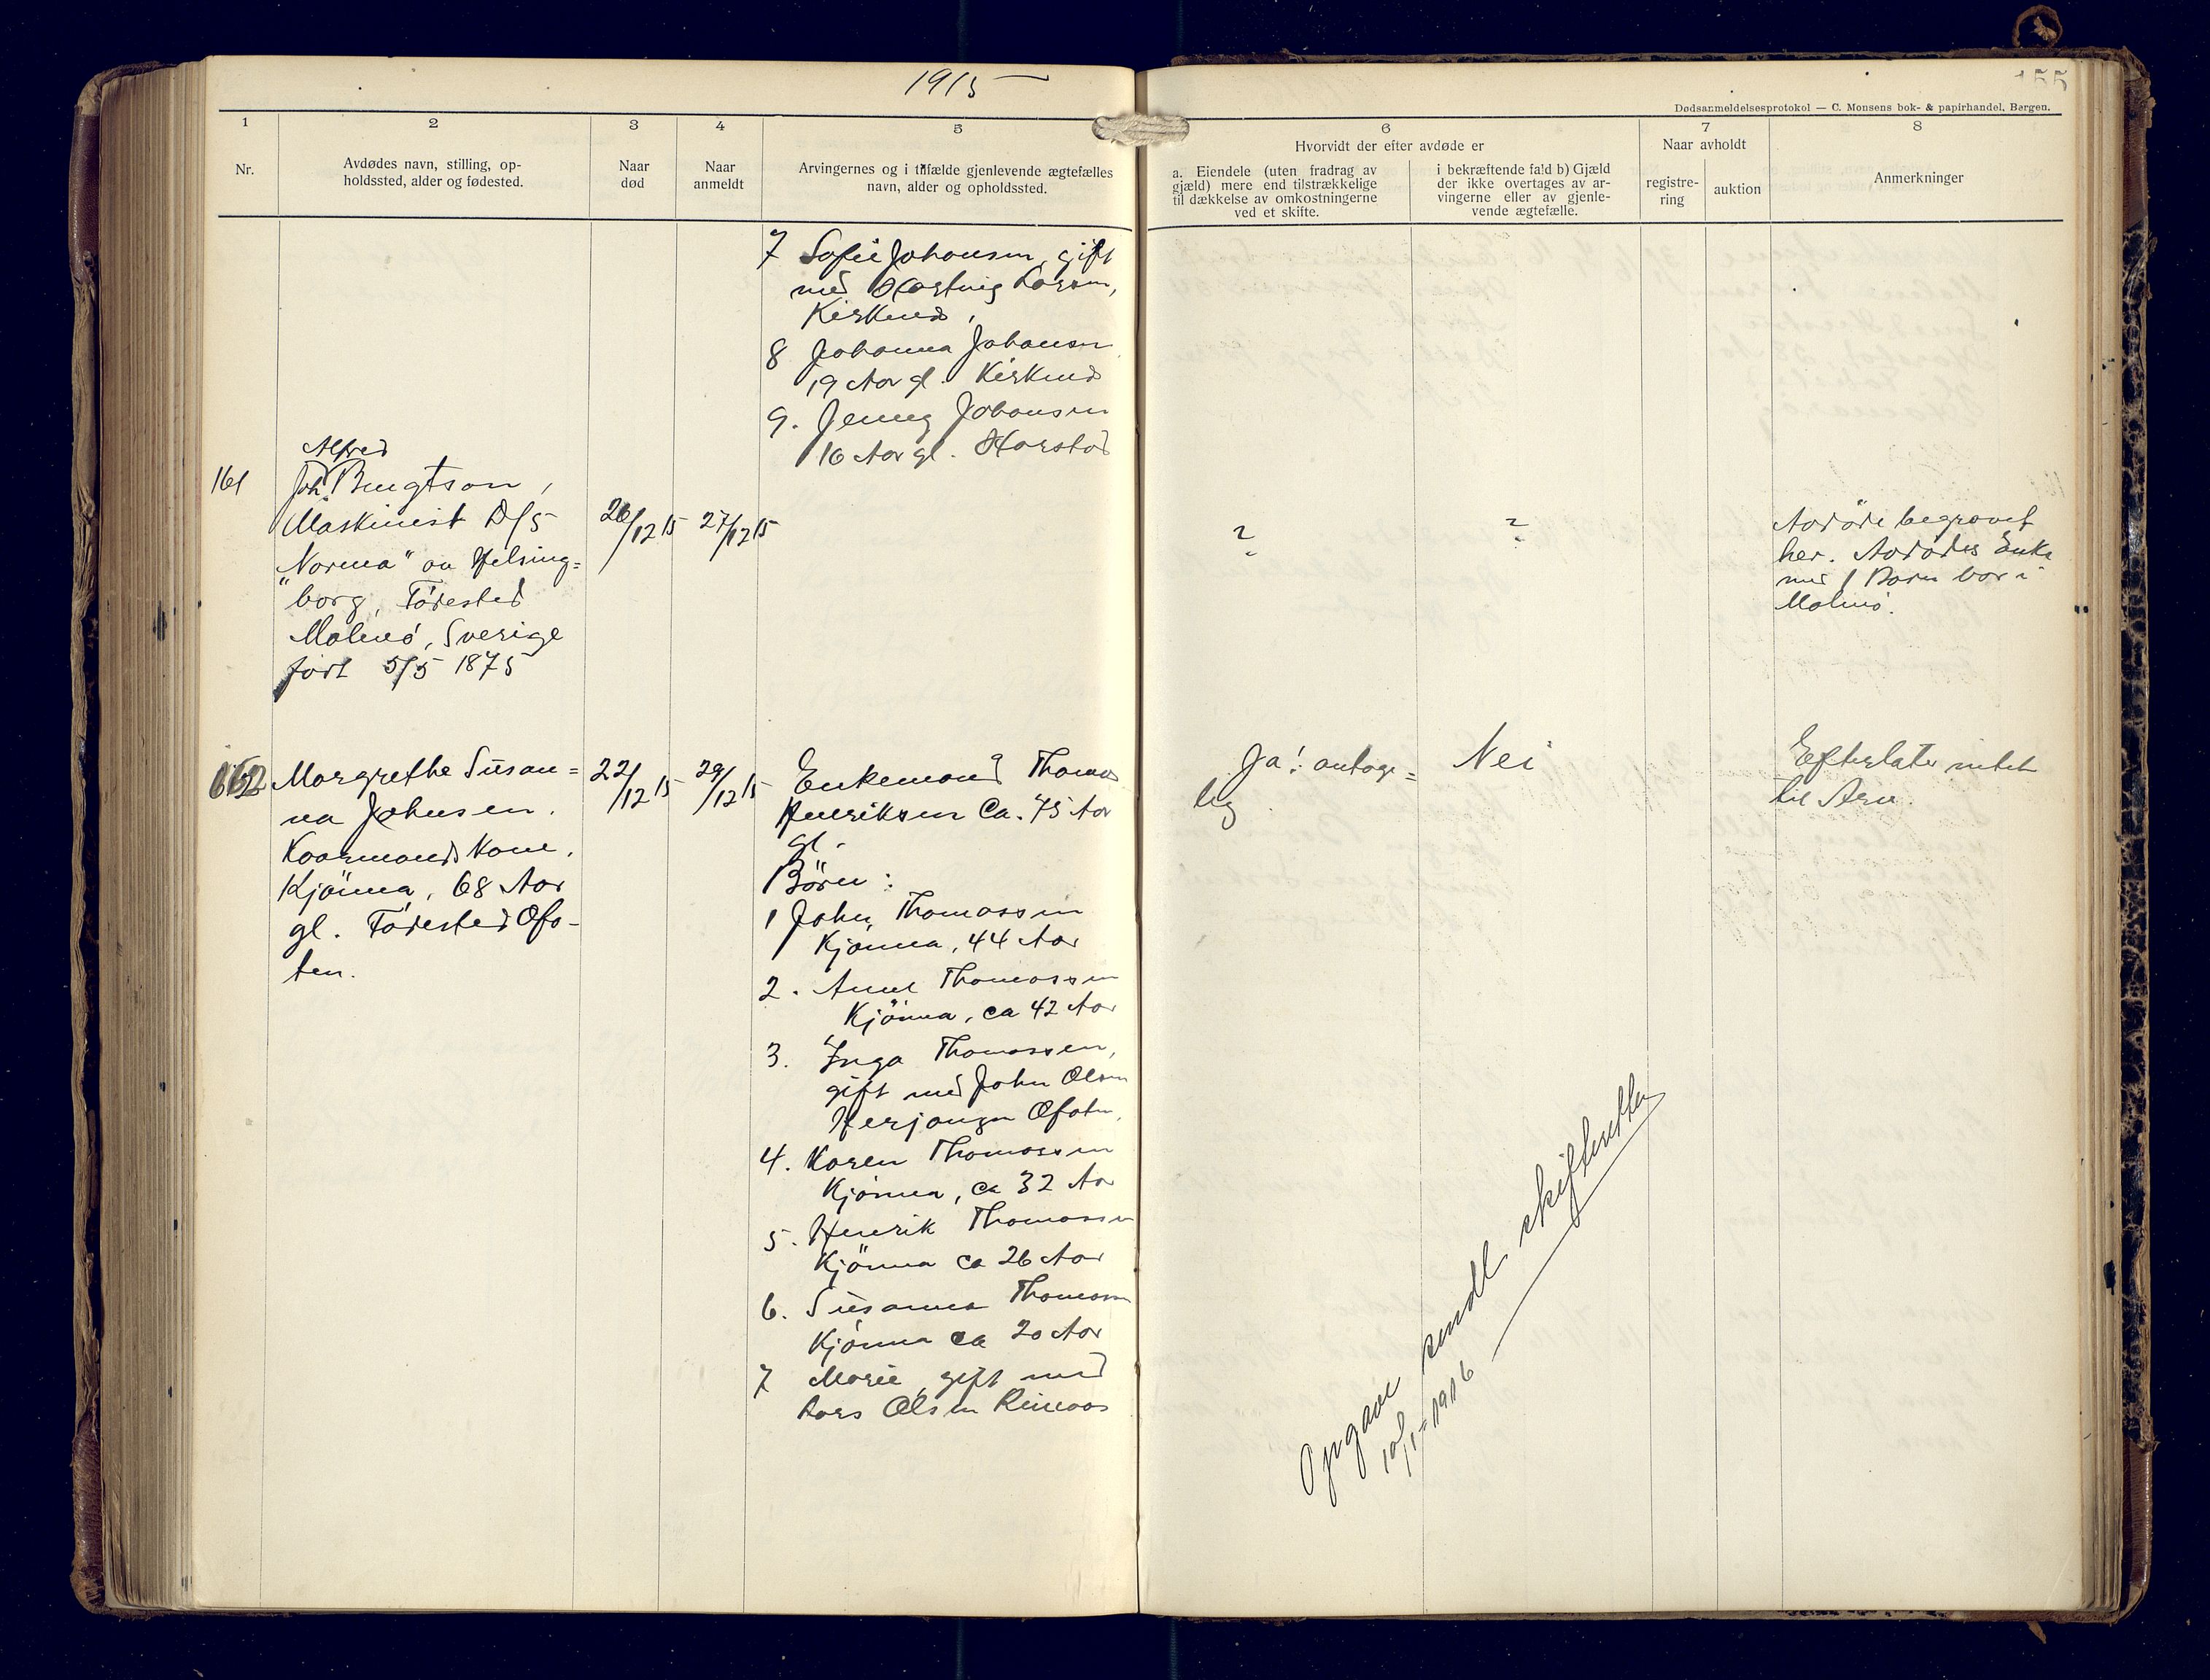 1915
155
Dødsanmeldelsesprotokol — C. Monsens bok- & papirhandel, Bergen.
1
Nr.
2
Avdødes navn, stilling, op-
holdssted, alder og fødested.
3
Naar
død
4
Naar
anmeldt
5
Arvingernes og i tilfælde gjenlevende ægtefælles
navn, alder og opholdssted.
6
Hvorvidt der efter avdøde er
a. Eiendele (uten fradrag av
gjæld) mere end tilstrækkelige
til dækkelse av omkostningerne
ved et skifte.
i bekræftende fald b) Gjæld
der ikke overtages av ar-
vingerne eller av gjenle-
vende ægtefælle.
7
Naar avholdt
registre-
ring
auktion
8
Anmerkninger
7 Sofie Johansen, gift
med Hartvig Larsen,
8 Johanna Johansen
19 Aar gl.
9. Jenny Johansen
16 Aar gl. Harstad
161
Alfred
Joh. Bengtson,
Maskinist D/S
"Norma" av Helsing=
borg, Födested
Malmö, Sverige
födt 5/5 1875
26/12 15
27/12 15
?
?
Avdöde begravet
her. Avdödes Enke
med 1 Barn bor i
Malmö.
162
Margrethe Susan=
na Johnsen.
Kaarmands Kone,
Kjönna, 68 Aar
gl. Födested Ofo-
ten.
22/12 15
29/12 15
Enkemand Thomas
Henriksen Ca. 75 Aar
gl.
Börn:
1 John Thomassen
Kjönna, 44 Aar
2. Anne Thomassen
Kjönna, ca 42 Aar
3. Inga Thomassen,
gift med John Olsen
Herjangen Ofoten,
4. Karen Thomassen
Kjönna, ca 32 Aar
5. Henrik Thomassen
Kjönna ca 26 Aar
6. Susanna Thomassen
Kjönna ca 20 Aar
7 Marie, gift med
Lars Olsen
Ja! antage=
lig
Nei
Efterlater intet
til Arv.
Opgave sendt skifteretten
10/1-1916